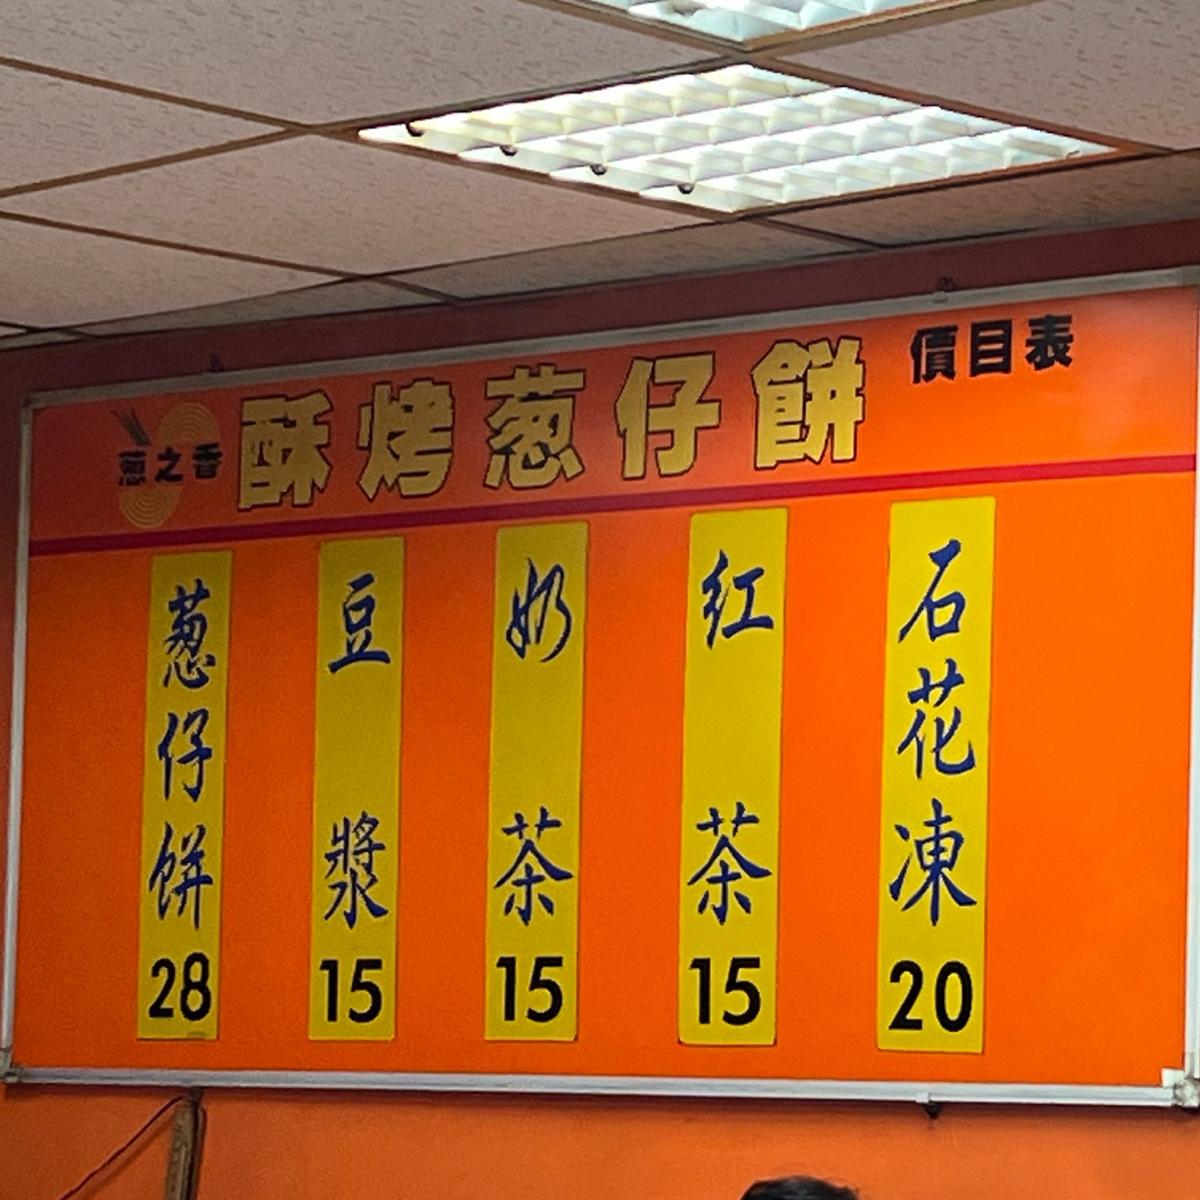 葱之香
酥烤葱仔餅
價目表
葱仔餅 28
豆漿 15
奶茶 15
紅茶 15
石花凍 20